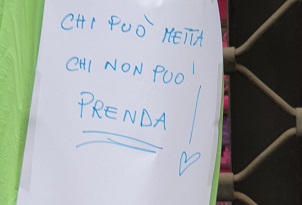 CHI PUÒ METTA
CHI NON PUO'
PRENDA